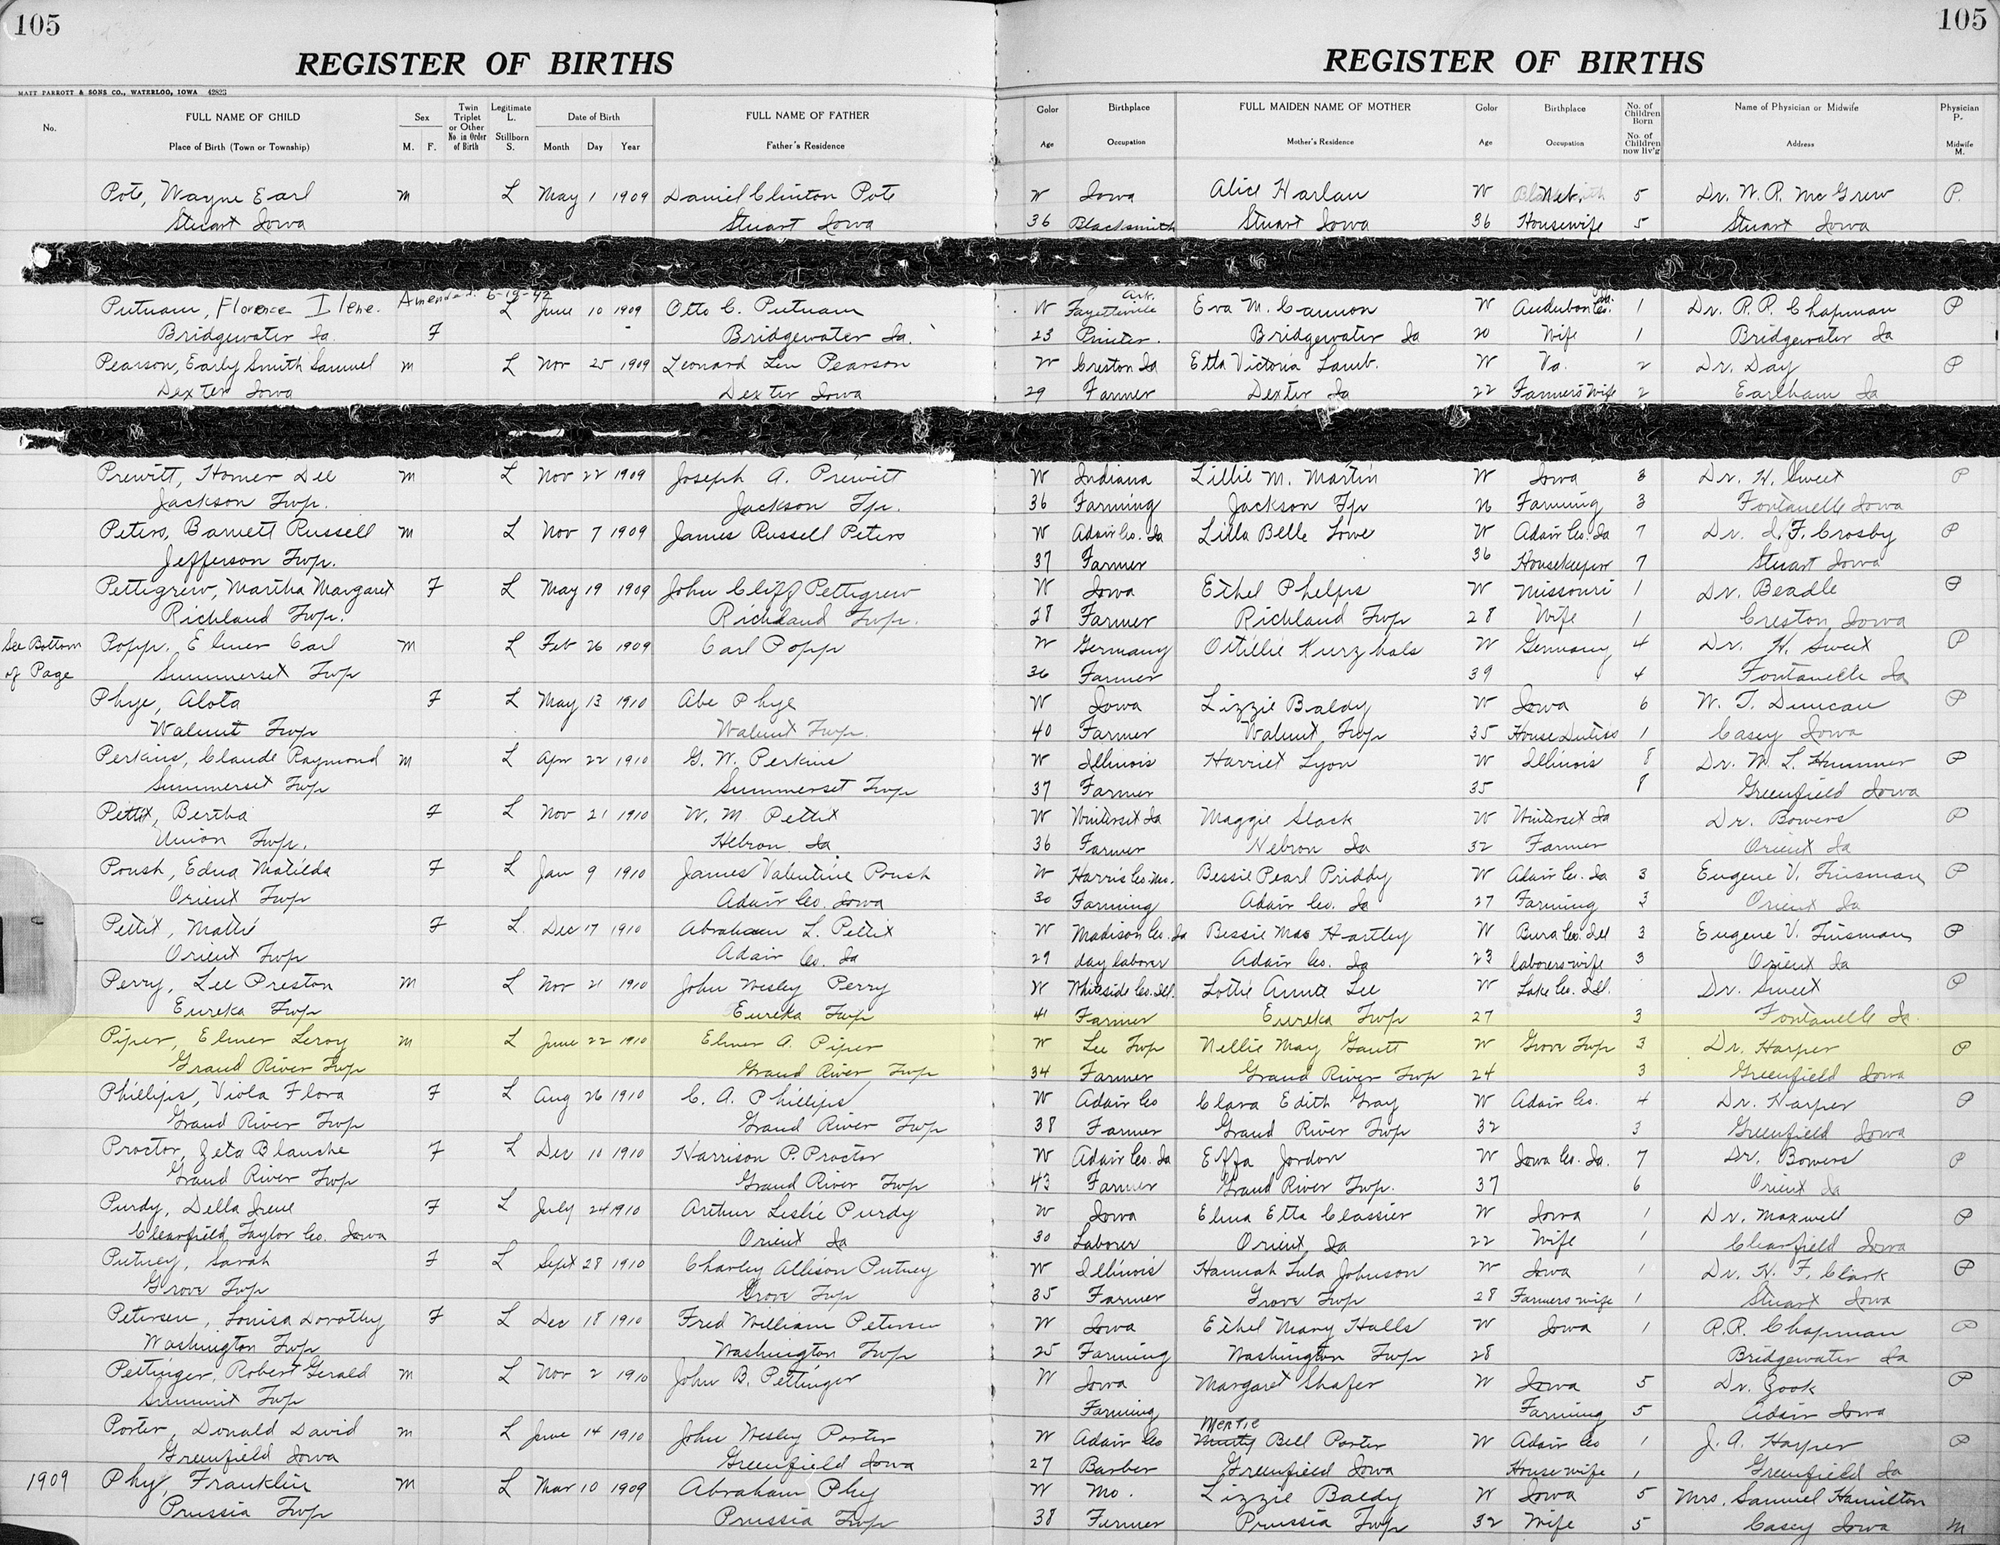 105
105
REGISTER OF BIRTHS
REGISTER OF BIRTHS
MATT PARROTT & SONS CO., WATERLOO, IOWA 42823
No. FULL NAME OF CHILD Sex Twin Triplet or Other No. in Order of Birth Legitimate L. Stillborn S. Date of Birth FULL NAME OF FATHER Color Birthplace FULL MAIDEN NAME OF MOTHER Color Birthplace No. of Children Born Name of Physician or Midwife Physician P.
Place of Birth (Town or Township) M. F. Month Day Year Father's Residence Age Occupation Mother's Residence Age Occupation No. of Children now liv'g Address Midwife M.
Pote, Wayne Earl M L May 1 1909 Daniel Clinton Pote W Iowa Alice Harlan W 5 Dr. W. R. McGrew P.
Stuart Iowa Stuart Iowa 36 Blacksmith Stuart Iowa 36 Housewife 5 Stuart Iowa
Amended. 6-19-42
Putnam, Florence Ilene. L June 10 1909 Otto C. Putnam W Fayetteville Ark. Eva M. Cannon W Audubon Co. Ia. 1 Dr. R. R. Chapman P
Bridgewater Ia F Bridgewater Ia. 23 Printer. Bridgewater Ia 20 Wife 1 Bridgewater Ia
Pearson, Early Smith Samuel M L Nov 25 1909 Leonard Lew Pearson W Creston Ia Etta Victoria Lamb. W Va. 2 Dr. Day P
Dexter Iowa Dexter Iowa 29 Farmer Dexter Ia 22 Farmers Wife 2 Earlham Ia
Prewitt, Homer Dee M L Nov 22 1909 Joseph A. Prewitt W Indiana Lillie M. Martin W Iowa 3 Dr. H. Sweet P
Jackson Twp. Jackson Tp. 36 Farming Jackson Tp Farming 3 Fontanelle Iowa
Peters, Barnett Russell M L Nov 7 1909 James Russell Peters W Adair Co. Ia Lilla Belle Lowe W Adair Co. Ia 7 Dr. F. Crosby P
Jefferson Twp. 37 Farmer 36 Housekeeper 7 Stuart Iowa
Pettigrew, Martha Margaret F L May 19 1909 John Cliff Pettigrew W Iowa Ethel Phelps W Missouri 1 Dr. Beadle P
Richland Twp. Richland Twp. 28 Farmer Richland Twp 28 Wife 1 Creston, Iowa
See Bottom Popp, Elmer Carl M L Feb 26 1909 Carl Popp W Germany Ottillie Kurzhals W Germany 4 Dr. H. Sweet P
of Page Summerset Twp 36 Farmer 39 4 Fontanelle Ia
Phye, Alota F L May 13 1910 Abe Phye W Iowa Lizzie Baldy W Iowa 6 W. T. Duncan P
Walnut Twp Walnut Twp. 40 Farmer Walnut Twp 35 House Duties 1 Casey Iowa
Perkins, Claude Raymond M L Apr 22 1910 G. W. Perkins W Illinois Harriet Lyon W Illinois 8 Dr. W. L. Hummer P
Summerset Twp Summerset Twp 37 Farmer 35 8 Greenfield Iowa
Pettit, Bertha F L Nov 21 1910 W. M. Pettit W Winterset Ia Maggie Slack W Winterset Ia Dr. Bowers P
Union Twp. Hebron Ia 36 Farmer Hebron Ia 32 Farmer Orient Ia
Poush, Edna Matilda F L Jan 9 1910 James Valentine Poush W Harris Co. Mo. Bessie Pearl Priddy W Adair Co. Ia 3 Eugene V. Tinsman P
Orient Twp Adair Co. Iowa 30 Farming Adair Co. Ia 27 Farming 3 Orient Ia
Pettit, Mattie F L Dec 17 1910 Abraham L. Pettit W Madison Co. Ia Bessie Mae Hartley W Co. Ill 3 Eugene V. Tinsman P
Orient Twp Adair Co. Ia 29 day laborer Adair Co. Ia 23 laborers wife 3 Orient Ia
Perry, Lee Preston M L Nov 21 1910 John Wesley Perry W Whiteside Co. Ill. Lottie Anna Lee W Lake Co. Ill. Dr. Sweet P
Eureka Twp Eureka Twp 41 Farmer Eureka Twp 27 3 Fontanelle Ia.
Piper, Elmer Leroy M L June 22 1910 Elmer A. Piper W Lee Twp Nellie May Gantt W Grove Twp 3 Dr. Harper P
Grand River Twp Grand River Twp 34 Farmer Grand River Twp 24 3 Greenfield Iowa
Phillips, Viola Flora F L Aug 26 1910 C. A. Phillips W Adair Co Clara Edith Gray W Adair Co. 4 Dr. Harper P
Grand River Twp Grand River Twp 38 Farmer Grand River Twp 32 3 Greenfield Iowa
Proctor, Zeta Blanche F L Dec 10 1910 Harrison P. Proctor W Adair Co. Ia Effa Jordon W Iowa Co. Ia. 7 Dr. Bowers P
Grand River Twp Grand River Twp 43 Farmer Grand River Twp. 37 6 Orient Ia
Purdy, Della Irene F L July 24 1910 Arthur Leslie Purdy W Iowa Elma Etta Classier W Iowa 1 Dr. Maxwell P
Clearfield, Taylor Co. Iowa Orient Ia 30 Laborer Orient Ia 22 Wife 1 Clearfield Iowa
Putney, Sarah F L Sept 28 1910 Charley Allison Putney W Illinois Hannah Lula Johnson W Iowa 1 Dr. H. F. Clark P
Grove Twp Grove Twp 35 Farmer Grove Twp 28 Farmers wife 1 Stuart Iowa
Petersen, Louisa Dorothy F L Dec 18 1910 Fred William Petersen W Iowa Ethel Mary Halls W Iowa 1 R.R. Chapman P
Washington Twp Washington Twp 25 Farming Washington Twp 28 Bridgewater Ia
Pettinger, Robert Gerald M L Nov 2 1910 John B. Pettinger W Iowa Margaret Shafer W Iowa 5 Dr. Zook P
Summit Twp Farming Farming 5 Adair Iowa
Mertie
Porter, Donald David M L June 14 1910 John Wesley Porter W Adair Co Bell Porter W Adair Co 1 J. A. Harper P
Greenfield Iowa Greenfield Iowa 27 Barber Greenfield Iowa Housewife 1 Greenfield Ia
1909 Phy, Franklin M L Mar 10 1909 Abraham Phy W Mo. Lizzie Baldy W Iowa 5 Mrs. Samuel Hamilton
Prussia Twp Prussia Twp 38 Farmer Prussia Twp 32 Wife 5 Casey Iowa M